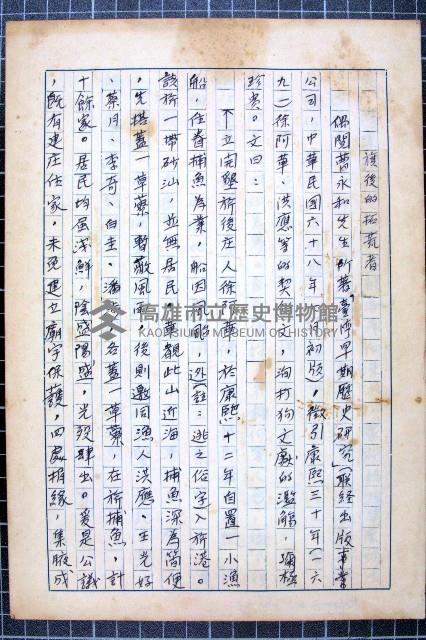 旗後的拓荒者
偶閱曹永和先生所著「臺灣早期歷史研究」(聯經出版事業
公司,中華民國六十八年 月初版),徵引康熙三十年(一六
九一)徐阿華、洪應等的契 文,洵打狗文獻的濫觴,彌極
珍貴。文曰:
不立開墾旂後庄人徐阿華,於康熙十二年自置一小漁
船,住眷捕魚為業,船因風 ,迯(註:逃之俗字)入旂港。
該旂一帶砂汕,並無居民。華觀此山近海,捕魚深為簡便
。先搭蓋一草藔,暫蔽風雨,後則邀同漁人洪應、王光好
、蔡月、李奇、白圭、潘 各蓋一草藔,在旂捕魚,計
十餘家。居民均屬浅鮮,陰盛陽盛,光殁肆出。爰是公議
,既有建庄住家,未免建立廟宇保護。四處捐緣,集腋成
高雄市立歷史博物館
KAOHSIUNG MUSEUM OF HISTORY